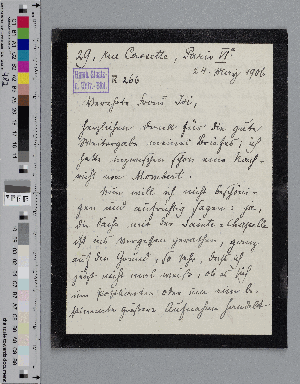 29, rue Cassette, Paris VIe
24. März 1906
Handschr.
R 266
Verehrte Frau Toi,
herzlichen Dank für die gute
Weitergabe meines Briefes; ich
hatte inzwischen schon eine Nach-
richt von Mombert.
Nun will ich nicht beschöni-
gen und aufrichtig sagen: ja,
die Sache mit der Sainte-Chapelle
ist mir vergessen gerathen, ganz
auf den Grund; so sehr, daß ich
jetzt nicht mal weiß, ob es sich
um Postkarten oder um eine be-
stimmte größere Aufnahme handelt.